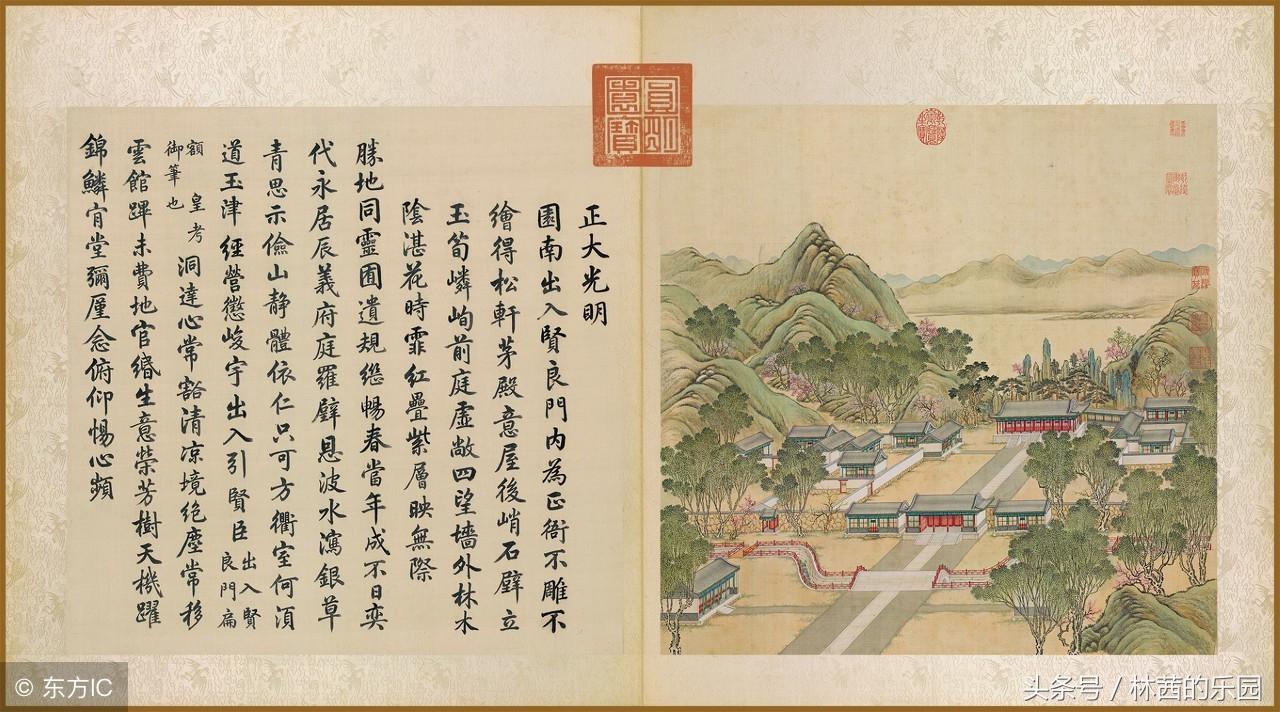 圓明園寶
正大光明
園南出入賢良門内為正衙不雕不
繪得松軒茅殿意屋後峭石壁立
玉筍嶙峋前庭虛敞四望墻外林木
陰湛花時霏紅疊紫層映無際
勝地同靈囿遺規継暢春當年成不日奕
代永居辰義府庭羅壁恩波水瀉銀草
青思示儉山静體依仁只可方衢室何湏
道玉津經營懲峻宇出入引賢臣出入賢良門扁
額 皇考御筆也洞達心常豁清凉境絶塵常移
雲館蹕未費地官緡生意榮芳樹天機躍
錦鱗肯堂彌厪念俯仰惕心頻
© 东方IC
头条号 / 林茜的乐园